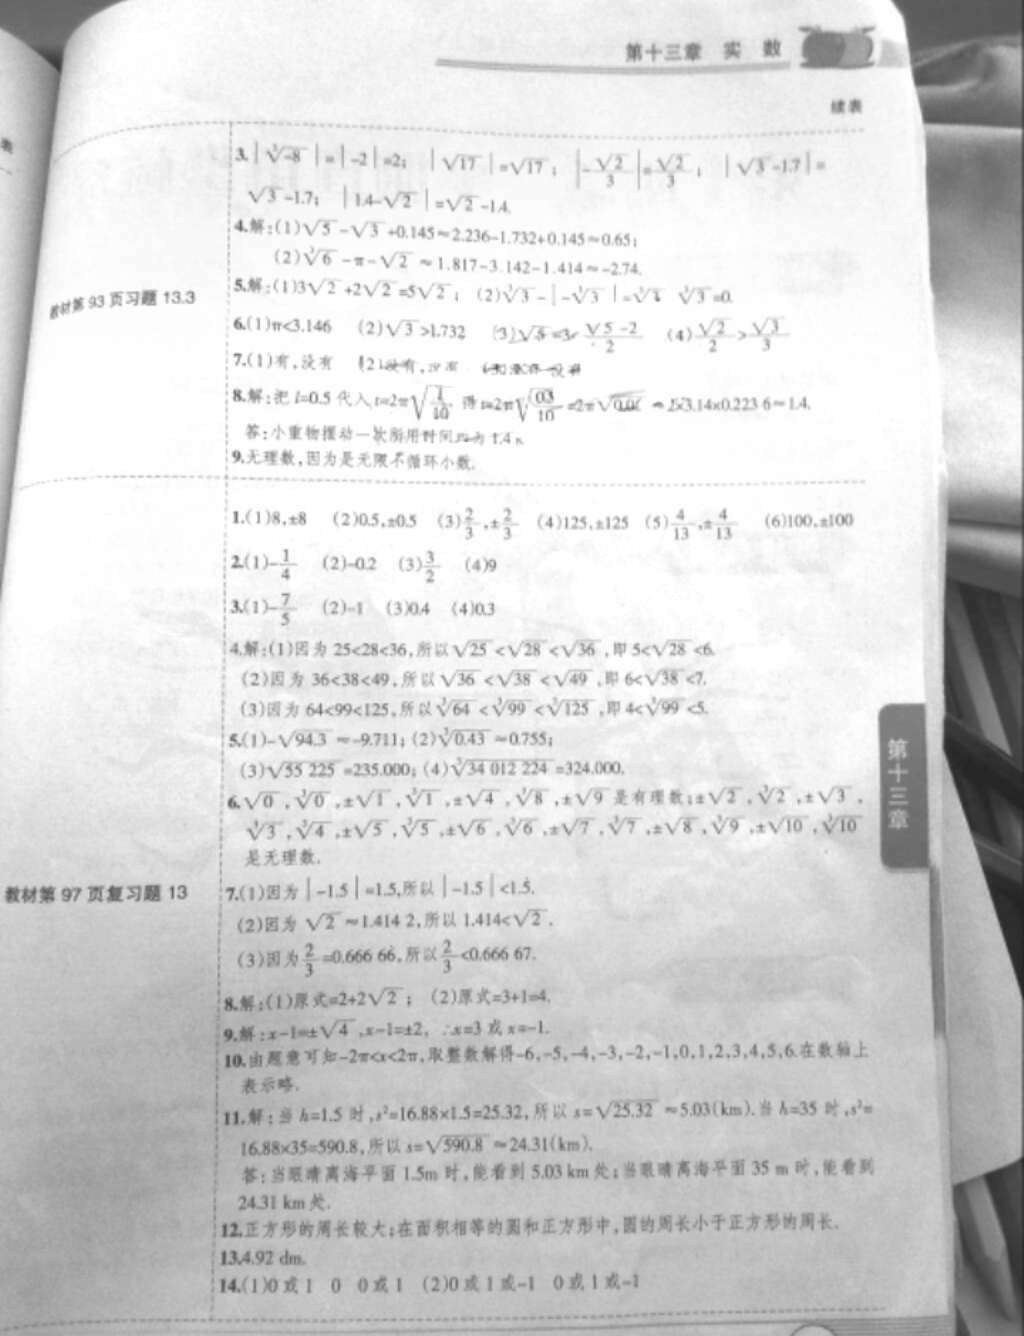 第十三章 实 数
续表
3.|∛-8|=|-2|=2; |√17|=√17; |-√2/3|=√2/3; |√3-1.7|=
√3-1.7; |1.4-√2|=√2-1.4.
4.解:(1)√5-√3+0.145≈2.236-1.732+0.145≈0.65;
(2)∛6-π-√2≈1.817-3.142-1.414≈-2.74.
教材第93页习题13.3
5.解:(1)3√2+2√2=5√2; (2)∛3-|-∛3|=∛3 ∛3=0.
6.(1)π<3.146 (2)√3>1.732 (3) √5-2/2 (4)√2/2>√3/3
7.(1)有,没有 (2)没有,
8.解:把l=0.5代入t=2π√(l/10) 得t=2π√(0.5/10)=2π√0.05≈2×3.14×0.223 6≈1.4.
答:小重物摆动一次所用时间约为1.4 s.
9.无理数,因为是无限不循环小数.
教材第97页复习题13
1.(1)8,±8 (2)0.5,±0.5 (3)2/3,±2/3 (4)125,±125 (5)4/13,±4/13 (6)100,±100
2.(1)-1/4 (2)-0.2 (3)3/2 (4)9
3.(1)-7/5 (2)-1 (3)0.4 (4)0.3
4.解:(1)因为25<28<36,所以√25<√28<√36,即5<√28<6.
(2)因为36<38<49,所以√36<√38<√49,即6<√38<7.
(3)因为64<99<125,所以∛64<∛99<∛125,即4<∛99<5.
5.(1)-√94.3≈-9.711; (2)∛0.43≈0.755;
(3)√55 225=235.000; (4)∛34 012 224=324.000.
6.√0,∛0,±√1,∛1,±√4,∛8,±√9是有理数;±√2,∛2,±√3,
∛3,∛4,±√5,∛5,±√6,∛6,±√7,∛7,±√8,∛9,±√10,∛10
是无理数.
7.(1)因为|-1.5|=1.5,所以|-1.5|<1.5̇.
(2)因为√2≈1.414 2,所以1.414<√2.
(3)因为2/3=0.666 66,所以2/3<0.666 67.
8.解:(1)原式=2+2√2; (2)原式=3+1=4.
9.解:x-1=±√4,x-1=±2, ∴x=3或x=-1.
10.由题意可知-2π<x<2π,取整数解得-6,-5,-4,-3,-2,-1,0,1,2,3,4,5,6.在数轴上
表示略.
11.解:当h=1.5时,s²=16.88×1.5=25.32,所以s=√25.32≈5.03(km).当h=35时,s²=
16.88×35=590.8,所以s=√590.8≈24.31(km).
答:当眼睛离海平面1.5m时,能看到5.03 km处;当眼睛离海平面35 m时,能看到
24.31 km处.
12.正方形的周长较大;在面积相等的圆和正方形中,圆的周长小于正方形的周长.
13.4.92 dm.
14.(1)0或1 0 0或1 (2)0或1或-1 0或1或-1
第十三章